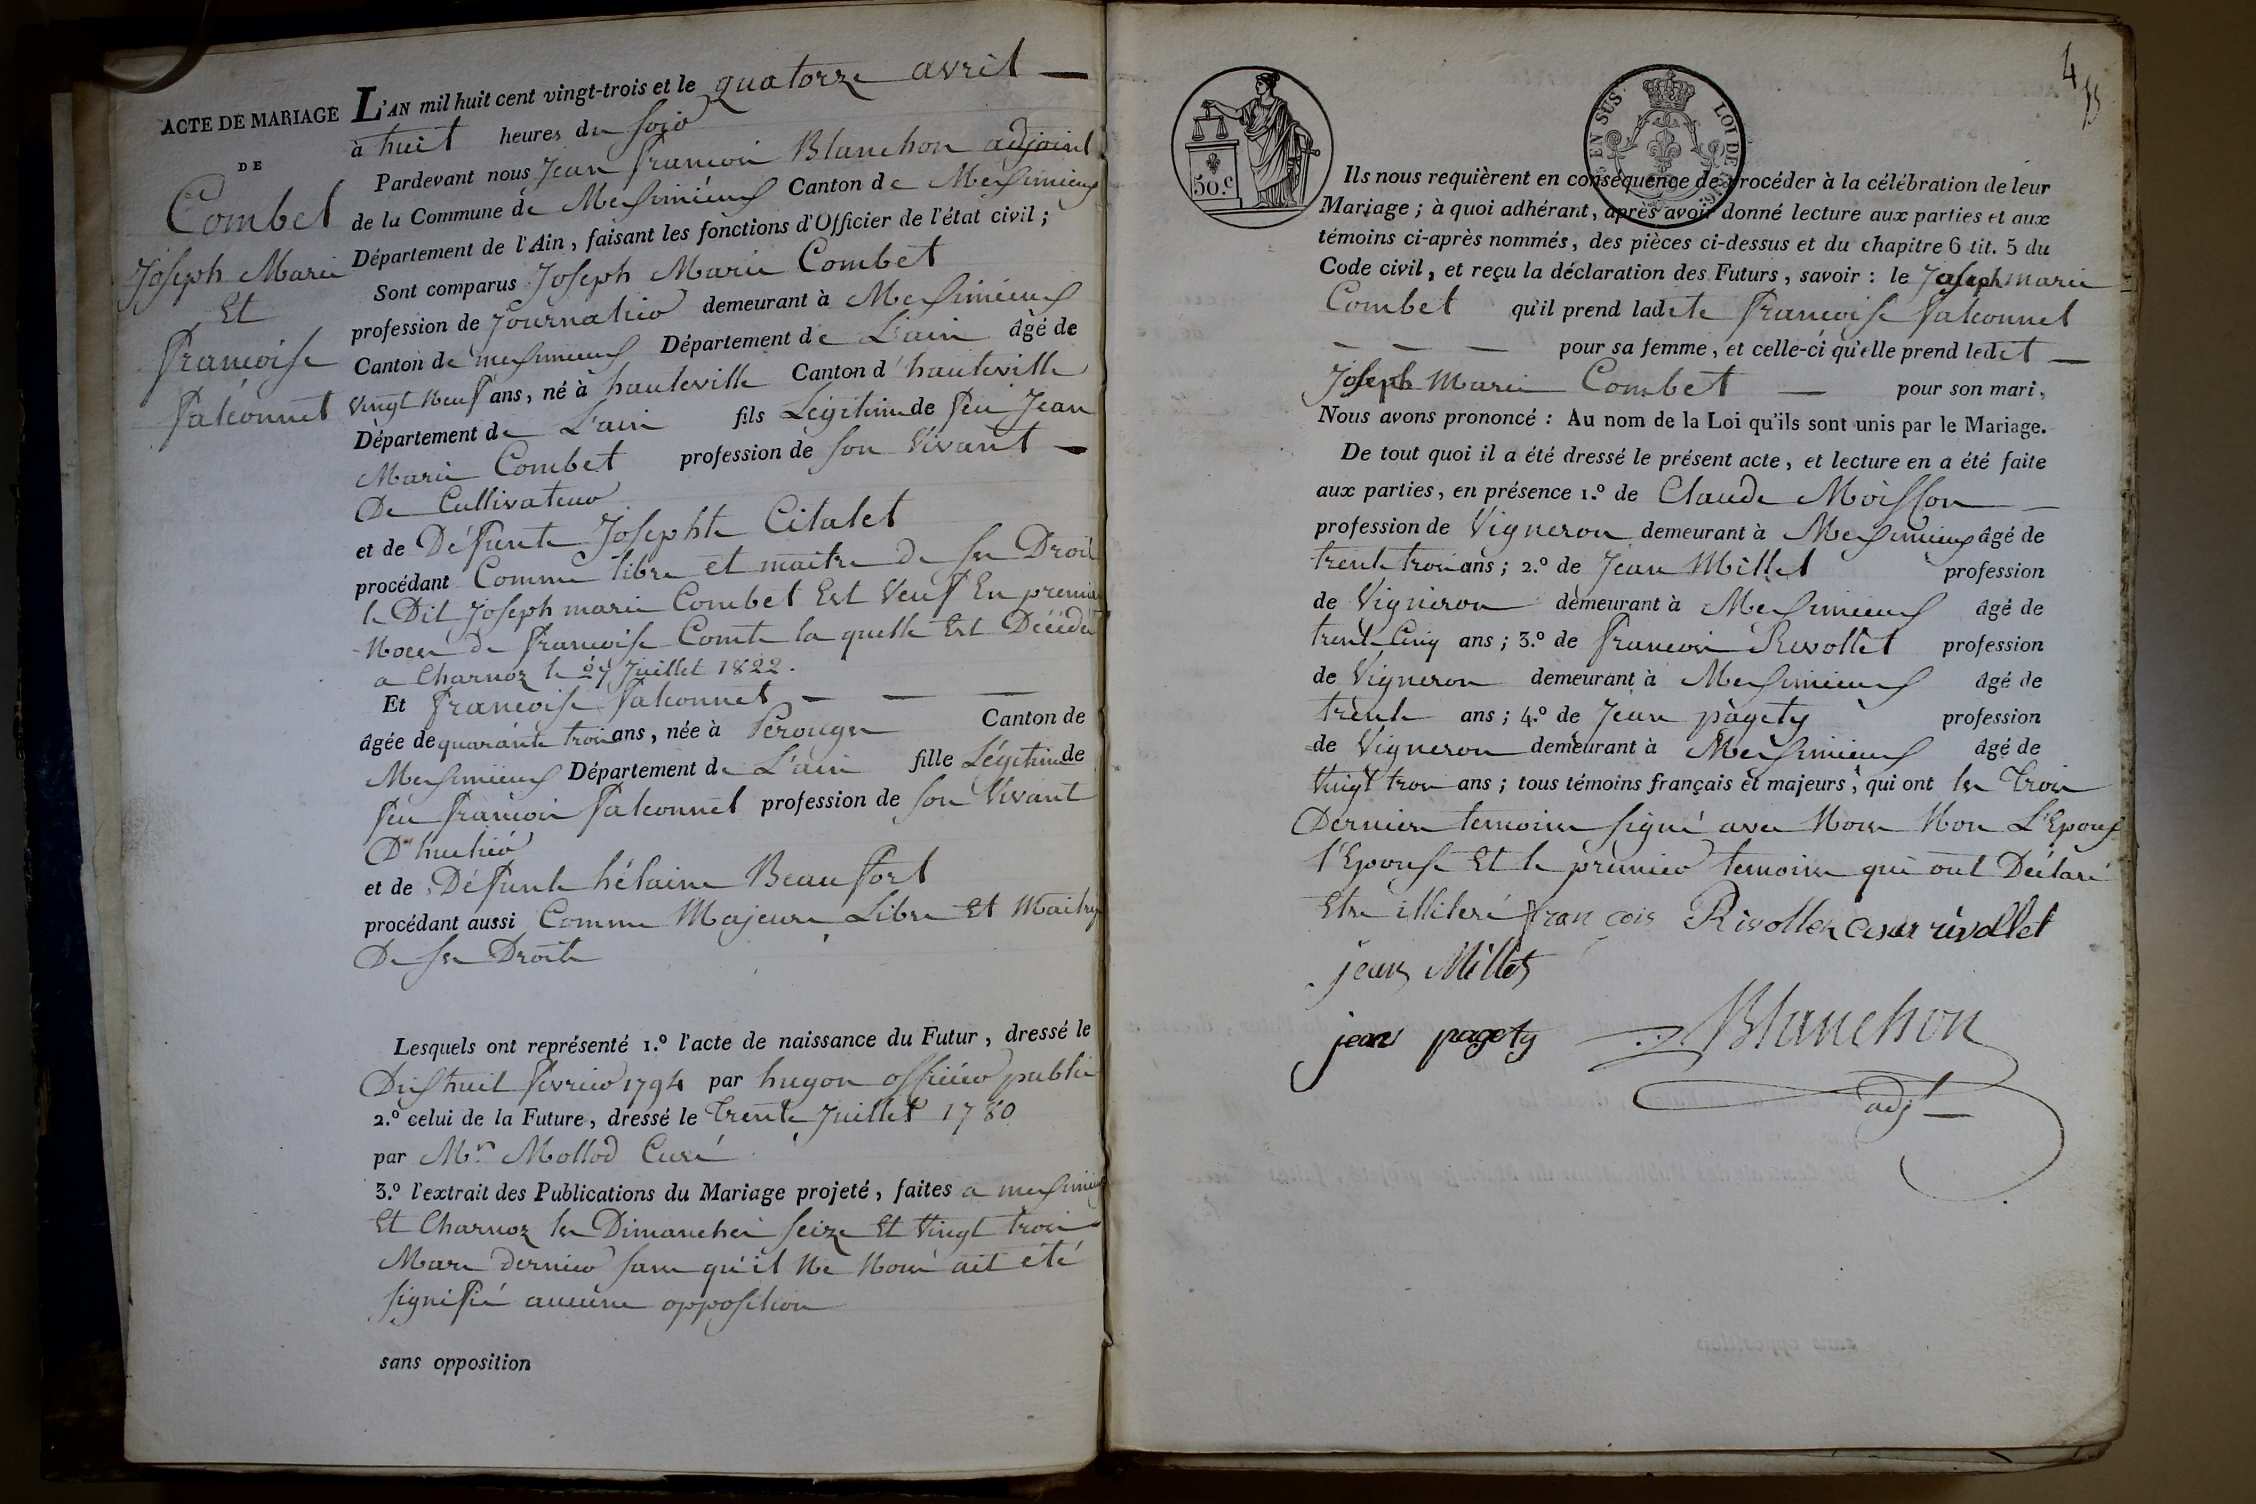 ACTE DE MARIAGE
DE
Combet
Joseph Marie
Et
francoise
falconnet
L'AN mil huit cent vingt-trois et le quatorze avril
à huit heures du soir
Pardevant nous Jean francois Blanchon adjoint
de la Commune de Meximieux Canton de Meximieux
Département de l'Ain, faisant les fonctions d'Officier de l'état civil;
Sont comparus Joseph Marie Combet
profession de Journalier demeurant à Meximieux
Canton de meximieux Département de L'ain âgé de
Vingt Neuf ans, né à hauteville Canton d'hauteville
Département de L'ain fils Légitime de feu Jean
Marie Combet profession de son Vivant
De Cultivateur
et de Défunte Josephte Citalet
procédant Comme libre et maitre de ses Droits
le Dit Joseph marie Combet Est Veuf En premier
Noces de francoise Comte la quelle Est Décédée
a Charnoz le 27 Juillet 1822.
Et francoise falconnet
âgée de quarante trois ans, née à Perouges Canton de
Meximieux Département de L'ain fille Légitime de
feu francois falconnet profession de son Vivant
D'huilier
et de Défunte hélaine Beaufort
procédant aussi Comme Majeure Libre Et Maitresse
De ses Droits
Lesquels ont représenté 1.º l'acte de naissance du Futur, dressé le
Dix huit fevrier 1794 par hugon officier public
2.º celui de la Future, dressé le Trente Juillet 1780
par Mr. Mollod Curé
3.º l'extrait des Publications du Mariage projeté, faites a meximieux
Et Charnoz les Dimanches seize Et Vingt trois
Mars dernier sans qu'il Ne Nous ait été
signifié aucune opposition
sans opposition
4
50.c
EN SUS. LOI DE
Ils nous requièrent en conséquence de procéder à la célébration de leur
Mariage; à quoi adhérant, après avoir donné lecture aux parties et aux
témoins ci-après nommés, des pièces ci-dessus et du chapitre 6 tit. 5 du
Code civil, et reçu la déclaration des Futurs, savoir: le Joseph marie
Combet qu'il prend ladete francoise falconnet
pour sa femme, et celle-ci qu'elle prend ledet
Joseph Marie Combet pour son mari.
Nous avons prononcé: Au nom de la Loi qu'ils sont unis par le Mariage.
De tout quoi il a été dressé le présent acte, et lecture en a été faite
aux parties, en présence 1.º de Claude Moisson
profession de Vigneron demeurant à Meximieux âgé de
trente trois ans; 2.º de Jean Millet profession
de Vigneron demeurant à Meximieux âgé de
trente Cinq ans; 3.º de francois Rivollet profession
de Vigneron demeurant à Meximieux âgé de
trente ans; 4.º de Jean pagety profession
de Vigneron demeurant à Meximieux âgé de
Vingt trois ans; tous témoins français et majeurs, qui ont les Trois
Derniers temoins signé avec Nous Non L'Epoux
l'Epouse Et le premier temoins qui ont Déclaré
Etre illiteré fran cois Rivollet Cesar rivollet
jean Millet
jean pagety Blanchon
adjt